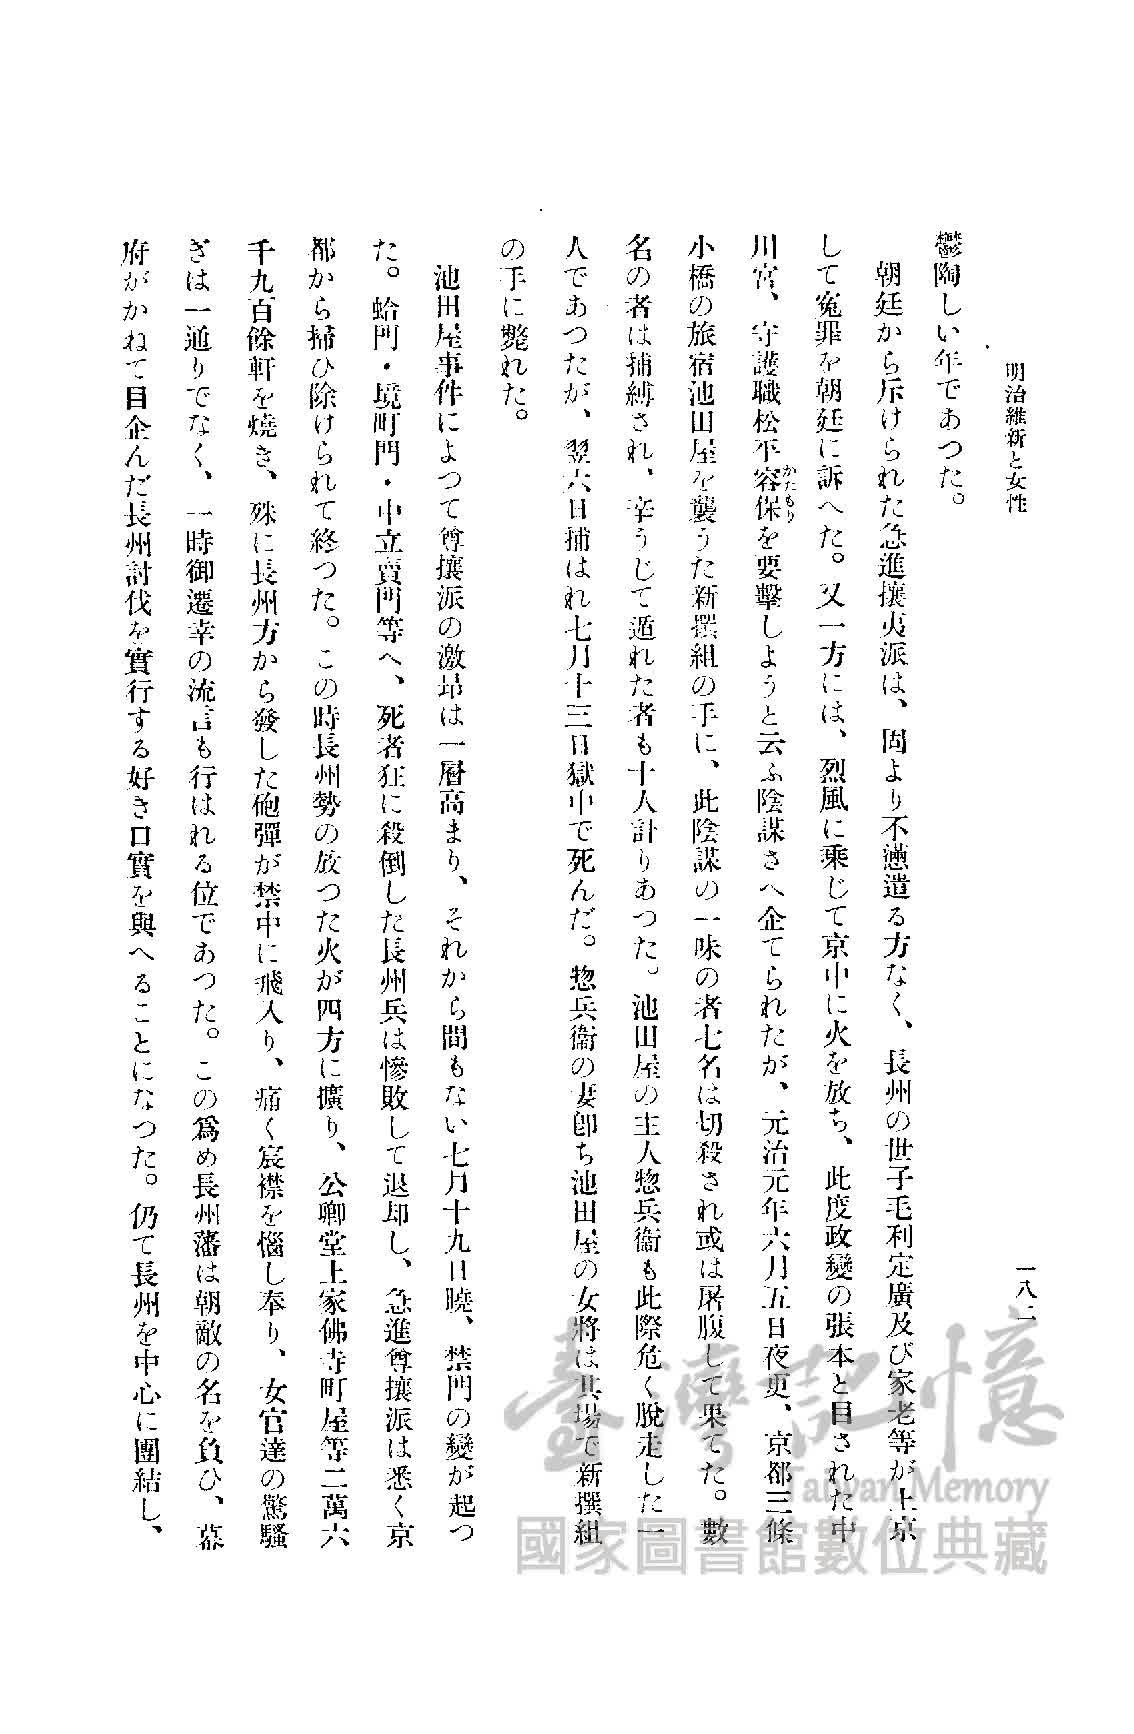 明治維新と女性
一八二
鬱陶しい年であつた。
朝廷から斥けられた急進攘夷派は、固より不懣遣る方なく、長州の世子毛利定廣及び家老等が上京
して寃罪を朝廷に訴へた。又一方には、烈風に乘じて京中に火を放ち、此度政變の張本と目された中
川宮、守護職松平容保を要擊しようと云ふ陰謀さへ企てられたが、元治元年六月五日夜更、京都三條
かたもり
小橋の旅宿池田屋を襲うた新撰組の手に、此陰謀の一味の者七名は切殺され或は屠腹して果てた。數
名の者は捕縛され、辛うじて遁れた者も十人計りあつた。池田屋の主人惣兵衞も此際危く脫走した一
人であつたが、翌六日捕はれ七月十三日獄中で死んだ。惣兵衞の妻卽ち池田屋の女將は其場で新撰組
の手に斃れた。
池田屋事件によつて尊攘派の激昂は一層高まり、それから間もない七月十九日曉、禁門の變が起つ
た。蛤門・境町門・中立賣門等へ、死者狂に殺倒した長州兵は慘敗して退却し、急進尊攘派は悉く京
都から掃ひ除けられて終つた。この時長州勢の放つた火が四方に擴り、公卿堂上家佛寺町屋等二萬六
千九百餘軒を燒き、殊に長州方から發した砲彈が禁中に飛入り、痛く宸襟を惱し奉り、女官達の驚騷
ぎは一通りでなく、一時御遷幸の流言も行はれる位であつた。この爲め長州藩は朝敵の名を負ひ、幕
府がかねて目企んだ長州討伐を實行する好き口實を與へることになつた。仍て長州を中心に團結し、
臺灣記憶
Taiwan Memory
國家圖書館數位典藏